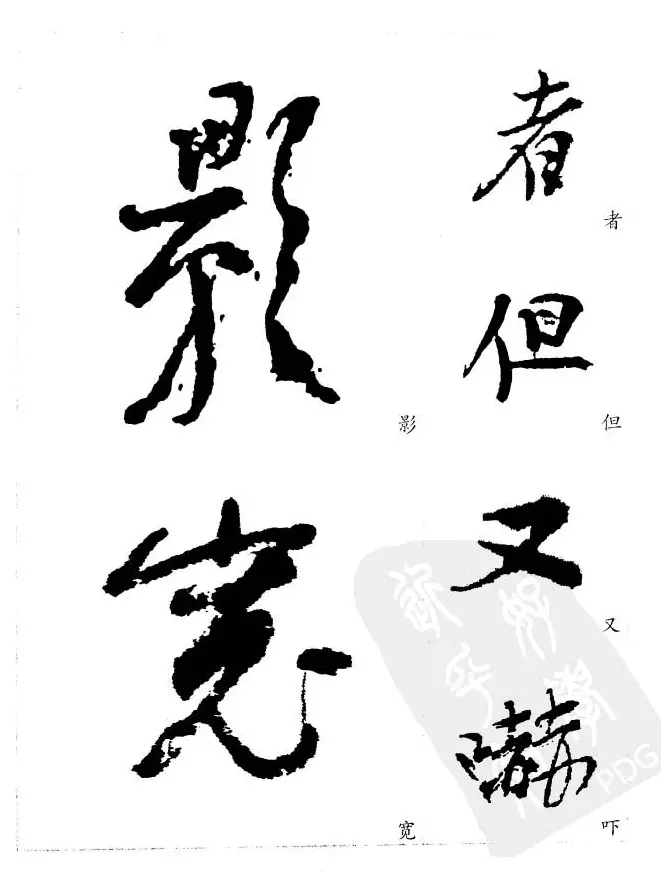 者
者
但
但
又
又
嚇
吓
影
影
寬
宽
PDG